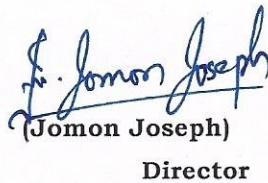 Fr. Jomon Joseph
(Jomon Joseph)
Director